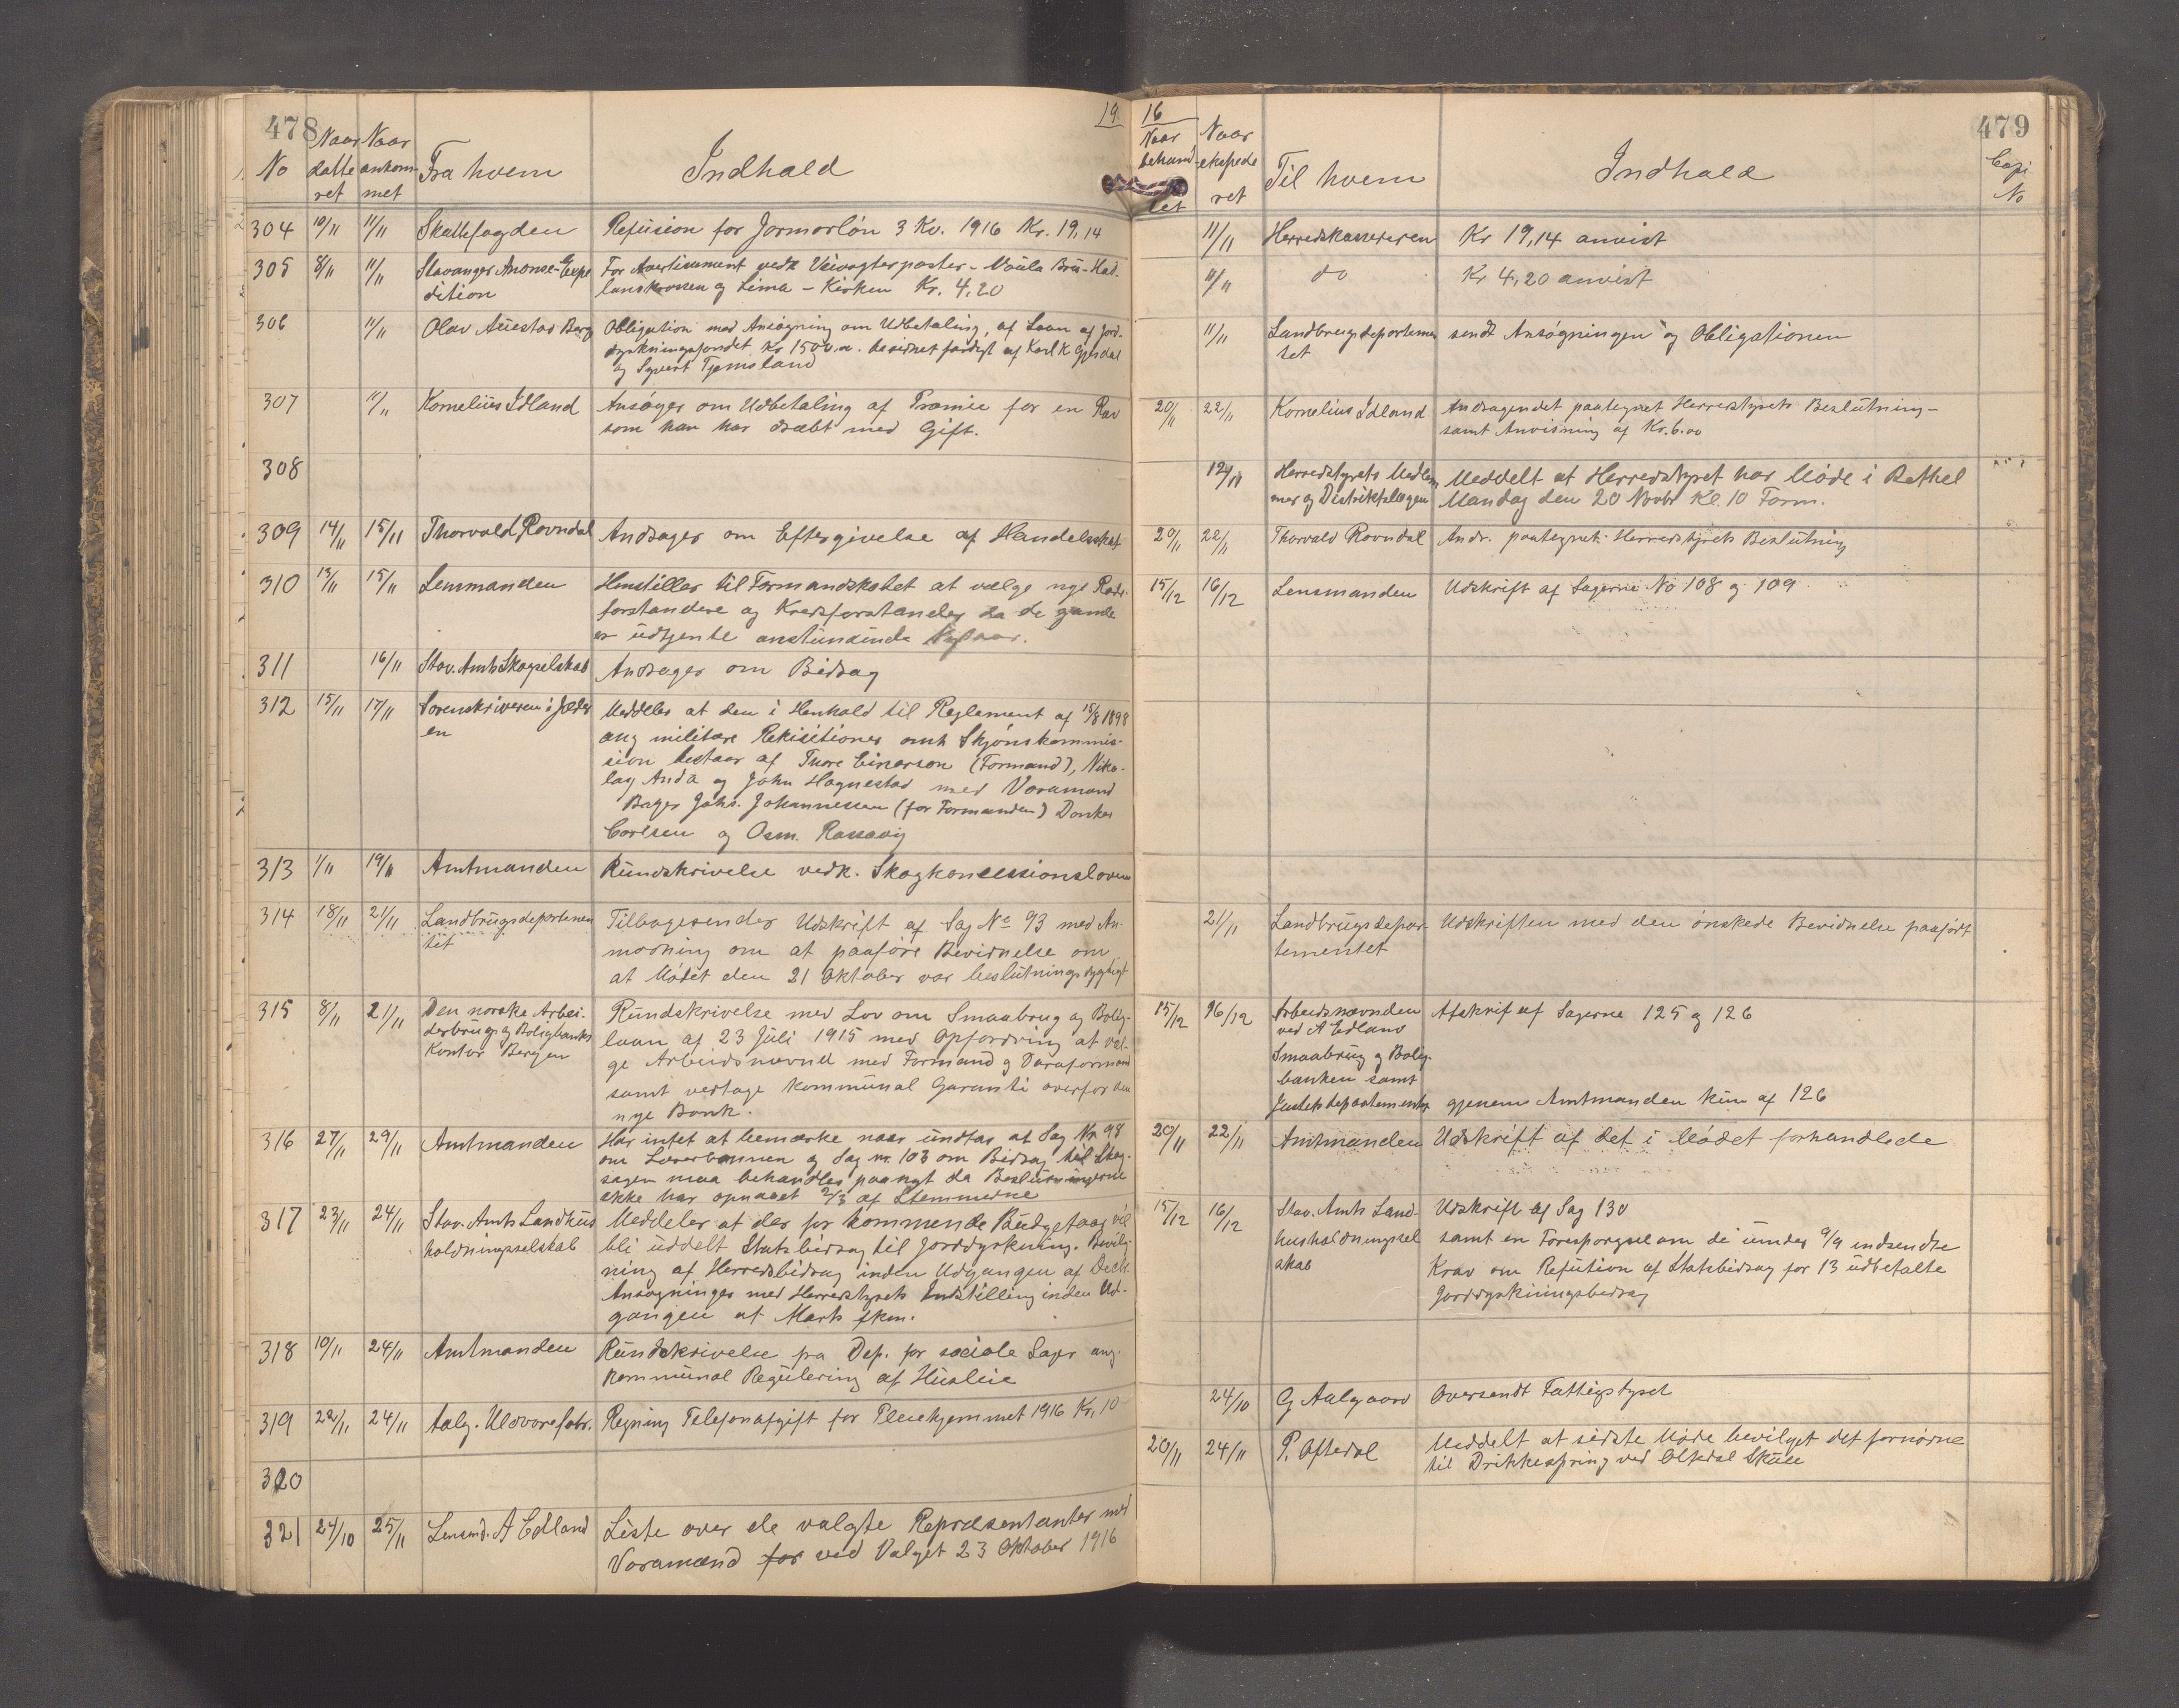 478
19
No
Naar datteret
Naar ankommet
Fra hvem
Indhald
304 10/11 11/11 Skattefogden Refusion for Jormorløn 3 Kv. 1916 Kr. 19,14
305 8/11 11/11 Stavanger Anonse-Expe For Avertissement vedk Veivogterposter - Maula Bru-Had-
dition lanskrossen og Lima - Kirken Kr. 4,20
306 11/11 Olav Auestad Berg Obligation med Ansøgning om Udbetaling af Laan af Jord-
dyrkningsfondet Kr 1500.00. besidnet færdigt af Karl K Gjesdal
og Syvert Tjemsland
307 11/11 Kornelius Idland Ansøger om Udbetaling af Præmie for en Rav
som han har dræbt med Gift.
308
309 14/11 15/11 Thorvald Ravndal Andrager om Eftergivelse af Handelsskat
310 13/11 15/11 Lensmanden Henstiller til Formandskabet at vælge nye Rode-
forstandere og Kredsforstander da de gamle
er udtjente anstundende Nytaar.
311 16/11 Stav. Amts Skogselskab Andrager om Bidrag
312 15/11 17/11 Sorenskriveren i Jæder Meddeles at den i Henhold til Reglement af 15/8 1898
en ang militære Rekisitioner omh Skjønskommis-
sion bestaar af Thore Einarson (Formand), Niko-
lay Anda og John Hognestad med Varamænd
Bager Johs. Johannessen (for Formanden) Dankert
Carlsen og Osm. Rassavig
313 1/11 19/11 Amtmanden Rundskrivelse vedk. Skogkoncessionsloven
314 18/11 21/11 Landbrugsdepartemen Tilbagesender Udskrift af Sag No 93 med An-
tet modning om at paaføre Bevidnelse om
at Mødet den 21 Oktober var beslutningsdygtigt
315 8/11 21/11 Den norske Arbei- Rundskrivelse med Lov om Smaabrug og Bolig-
derbrug og Boligbanks laan af 23 Juli 1915 med Opfordring at væl-
Kontor Bergen ge Arbeidsnævnd med Formand og Varaformand
samt vedtage kommunal Garanti overfor den
nye Bank.
316 27/11 29/11 Amtmanden Har intet at bemærke naar undtas at Sag Nr 98
om og Sag nr. 103 om Bidrag til Skog-
sagen maa behandles paanyt da Beslutningerne
ikke har opnaaet 2/3 af Stemmerne
317 23/11 24/11 Stav. Amts Landhus Meddeler at der for kommende Budgetaar vil
holdningsselskab bli uddelt Statsbidrag til Jorddyrkning. Bevilg-
ning af Herredsbidrag inden Udgangen af Decb.
Ansøgninger med Herredstyrets Indstilling inden Ud-
gangen af Marts fkm.
318 10/11 24/11 Amtmanden Rundskrivelse fra Dep. for sociale Sager ang.
kommunal Regulering af Husleie
319 22/11 24/11 Aalg. Uldvarefabr. Regning Telefonafgift for Pleiehjemmet 1916 Kr. 10
320
321 24/10 25/11 Lensmd. A Edland Liste over de valgte Repræsentanter med
Varamænd for ved Valget 23 Oktober 1916
16
479
Naar behandlet
Naar ekspederet
Til hvem
Indhald
Copi No
11/11 Herredskassereren Kr 19,14 anvist
11/11 do Kr 4,20 anvist
11/11 Landbrugsdepartemen sendt Ansøgningen og Obligationen
tet
20/11 22/11 Kornelius Idland Andragendet paategnet Herredstyrets Beslutning-
samt Anvisning af Kr. 6.00
12/11 Herredstyrets Medlem Meddelt at Herredstyret har Møde i Bethel
mer og Distriktslægen Mandag den 20 Novbr Kl. 10 Form.
20/11 22/11 Thorvald Ravndal Andr. paategnet Herredstyrets Beslutning
15/12 16/12 Lensmanden Udskrift af Sagerne No 108 og 109
21/11 Landbrugsdepar- Udskriften med den ønskede Bevidnelse paaført
tementet
15/12 16/12 Arbeidsnævnden Afskrift af Sagerne 125 og 126
ved A Edland
Smaabrug og Bolig-
banken samt
Justitsdepartementet gjenem Amtmanden kun af 126
20/11 22/11 Amtmanden Udskrift af det i Mødet forhandlede
15/12 16/12 Stav. Amts Land- Udskrift af Sag 130
husholdningssel samt en Forespørgsel om de under 9/9 indsendte
skab Krav om Refution af Statsbidrag for 13 udbetalte
Jorddyrkningsbidrag
24/10 G Aalgaard Oversendt Fattigstyret
20/11 24/11 P. Oftedal Meddelt at sidste Møde bevilget det fornødne
til Drikkespring ved Oltedal Skule